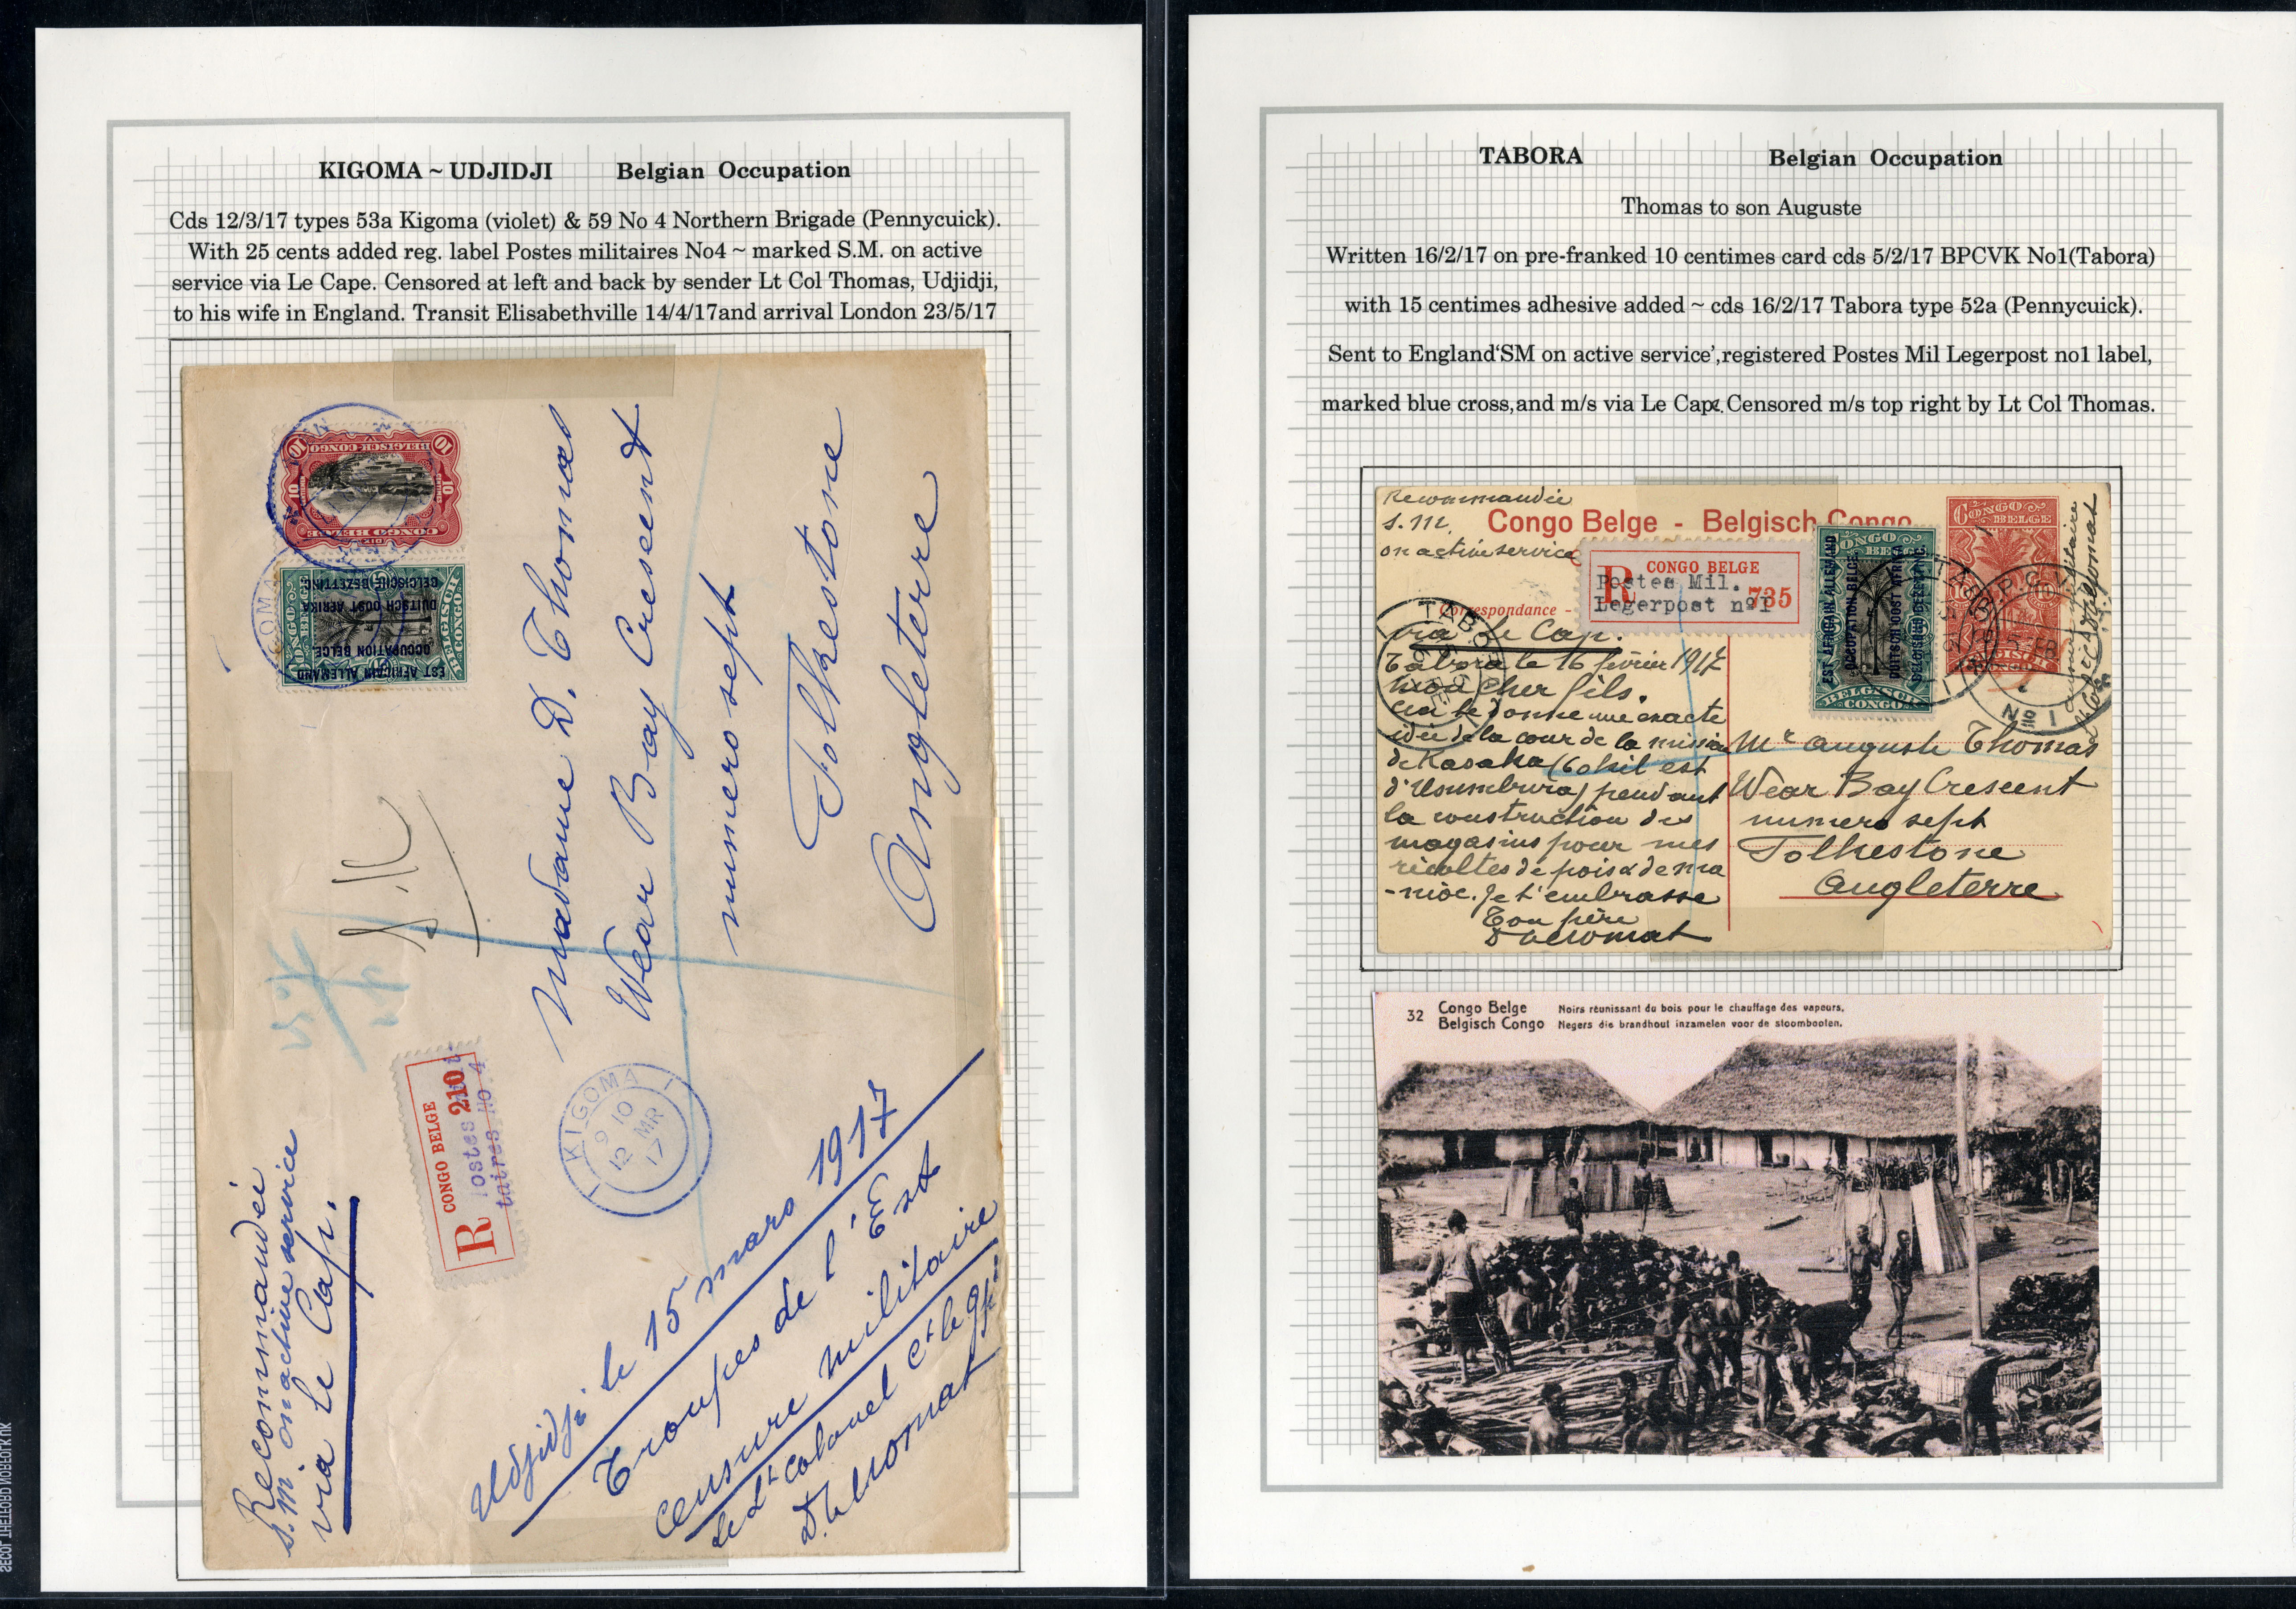 KIGOMA ~ UDJIDJI Belgian Occupation
Cds 12/3/17 types 53a Kigoma (violet) & 59 No 4 Northern Brigade (Pennycuick).
With 25 cents added reg. label Postes militaires No4 ~ marked S.M. on active
service via Le Cape. Censored at left and back by sender Lt Col Thomas, Udjidji,
to his wife in England. Transit Elisabethville 14/4/17and arrival London 23/5/17
BELGISCH-CONGO
10 10
CENTIMES
CONGO BELGE
EST AFRICAIN ALLEMAND
OCCUPATION BELGE.
DUITSCH OOST AFRIKA
BELGISCHE BEZETTING.
CONGO BELGE
BELGISCH CONGO
Madame D. Thomas
Wear Bay Crescent
numero sept
Folkestone
Angleterre
R CONGO BELGE
210
ostes
taires No 4
KIGOMA
9 10
12 MR
17
Recommandée
S.M. on active service
via le Cap.
Udjidji le 15 mars 1917
Troupes de l'Est
Censure militaire
le Lt Colonel
TABORA Belgian Occupation
Thomas to son Auguste
Written 16/2/17 on pre-franked 10 centimes card cds 5/2/17 BPCVK No1(Tabora)
with 15 centimes adhesive added ~ cds 16/2/17 Tabora type 52a (Pennycuick).
Sent to England‘SM on active service’,registered Postes Mil Legerpost no1 label,
marked blue cross,and m/s via Le Cape. Censored m/s top right by Lt Col Thomas.
Recommandée
S.M.
on active service
Congo Belge - Belgisch Congo
R CONGO BELGE
Postes Mil.
Legerpost nº1
735
Correspondance -
EST AFRICAIN ALLEMAND
OCCUPATION BELGE.
DUITSCH OOST AFRIKA
BELGISCH CONGO
CONGO BELGE
TABORA
No 1
via le Cap.
Tabora le 16 février 1917
Mon cher fils.
Ceci te donne une exacte
idée de la cour de la mission
de Kasaka (6 Kil est
d'Usumbura) pendant
la construction des
magasins pour mes
récoltes de pois & de ma
-nioc. Je t'embrasse
Ton père
Mr Auguste Thomas
Wear Bay Crescent
numero sept
Folkestone
Angleterre
32 Congo Belge Noirs réunissant du bois pour le chauffage des vapeurs.
Belgisch Congo Negers die brandhout inzamelen voor de stoombooten.